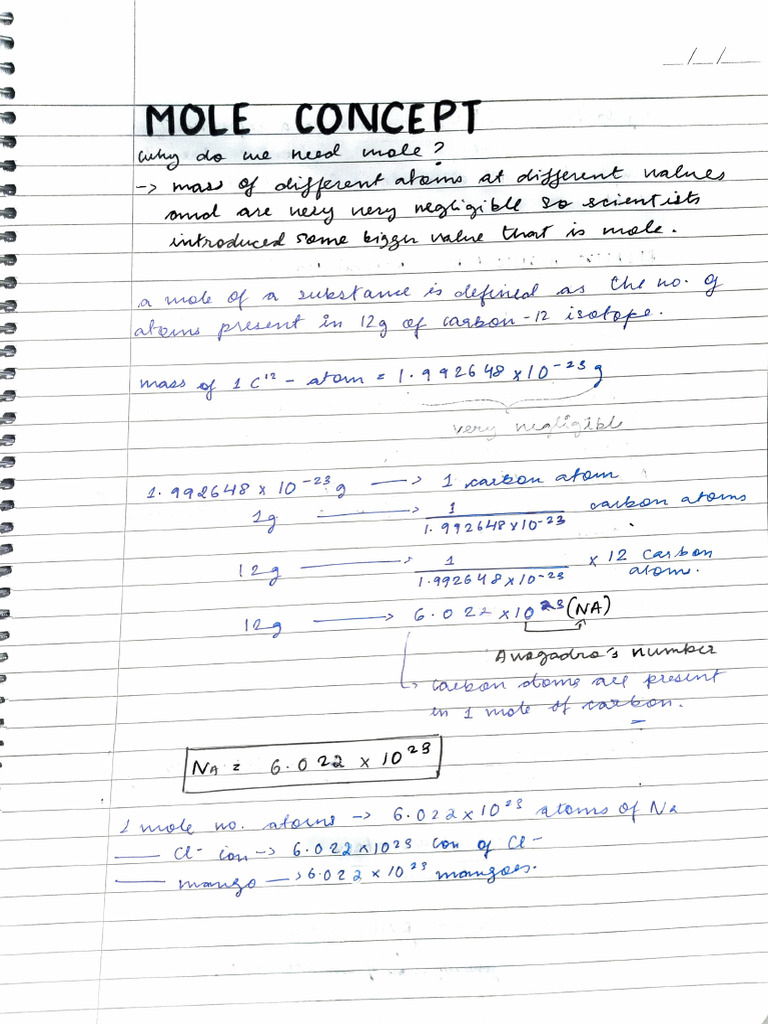 _/_/_
MOLE CONCEPT
why do we need mole?
-> mass of different atoms at different values
and are very very negligible so scientists
introduced some bigger value that is mole.
a mole of a substance is defined as the no. of
atoms present in 12g of carbon-12 isotope.
mass of 1 C¹² - atom = 1.992648 x 10⁻²³ g
very negligible
1.992648 x 10⁻²³ g —> 1 carbon atom
1g —> 1 / 1.992648x10⁻²³ carbon atoms
12g —> 1 / 1.992648x10⁻²³ x 12 carbon atom.
12g —> 6.022 x 10²³ (NA)
Avogadro's number
carbon atoms are present
in 1 mole of carbon.
NA = 6.022 x 10²³
1 mole no. atoms -> 6.022 x 10²³ atoms of Na
— Cl⁻ ion -> 6.022 x 10²³ ion of Cl⁻
— mango —> 6.022 x 10²³ mangoes.